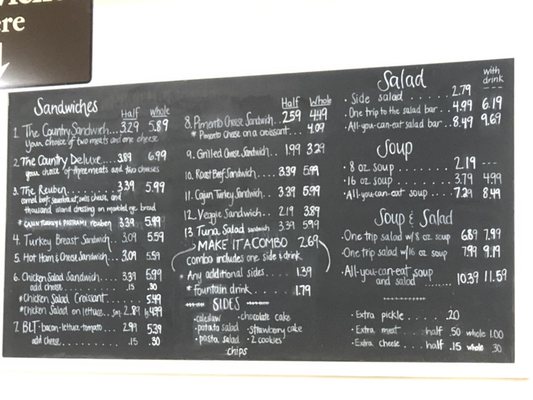 ere
Sandwiches
Half Whole
1. The Country Sandwich.. 3.29 5.89
your choice of two meats and one cheese
2. The Country Deluxe.. 3.89 6.99
your choice of three meats and two cheeses
3. The Reuben 3.39 5.99
corned beef, sauerkraut, swiss cheese, and
thousand island dressing on marbled rye bread
* Cajun Turkey & Pastrami reuben 3.39 5.99
4. Turkey Breast Sandwich.. 3.09 5.59
5. Hot Ham & Cheese Sandwich.. 3.09 5.59
6. Chicken Salad Sandwich 3.39 5.99
add cheese .15 .30
*Chicken Salad Croissant 5.49
*Chicken Salad on lettuce.. sm 2.89 lg 4.99
7. BLT - bacon-lettuce-tomato.. 2.99 5.39
add cheese .15 .30
Half Whole
8. Pimento Cheese Sandwich.. 2.59 4.49
* Pimento Cheese on a croissant.. 4.09
9. Grilled Cheese Sandwich.. 1.99 3.29
10. Roast Beef Sandwich.. 3.39 5.99
11. Cajun Turkey Sandwich.. 3.39 5.99
12. Veggie Sandwich.. 2.19 3.89
13 Tuna Salad sandwich 3.39 5.99
MAKE IT A COMBO 2.69
combo includes one side & drink
* Any additional sides .. 1.39
* fountain drink .. 1.79
SIDES
• coleslaw • chocolate cake
• potato salad • strawberry cake
• pasta salad • 2 cookies
• chips
Salad
with drink
• Side salad 2.79 ---
• One trip to the salad bar .. 4.99 6.19
• All-you-can-eat salad bar .. 8.49 9.69
Soup
• 8 oz soup 2.19 ---
• 16 oz soup 3.79 4.99
• All-you-can-eat soup 7.29 8.49
Soup & Salad
• One trip salad w/ 8 oz soup 6.89 7.99
• One trip salad w/16 oz soup 7.99 9.19
• All-you-can-eat soup
and salad 10.39 11.59
• Extra pickle .20
• Extra meat half .50 whole 1.00
• Extra cheese half .15 whole .30